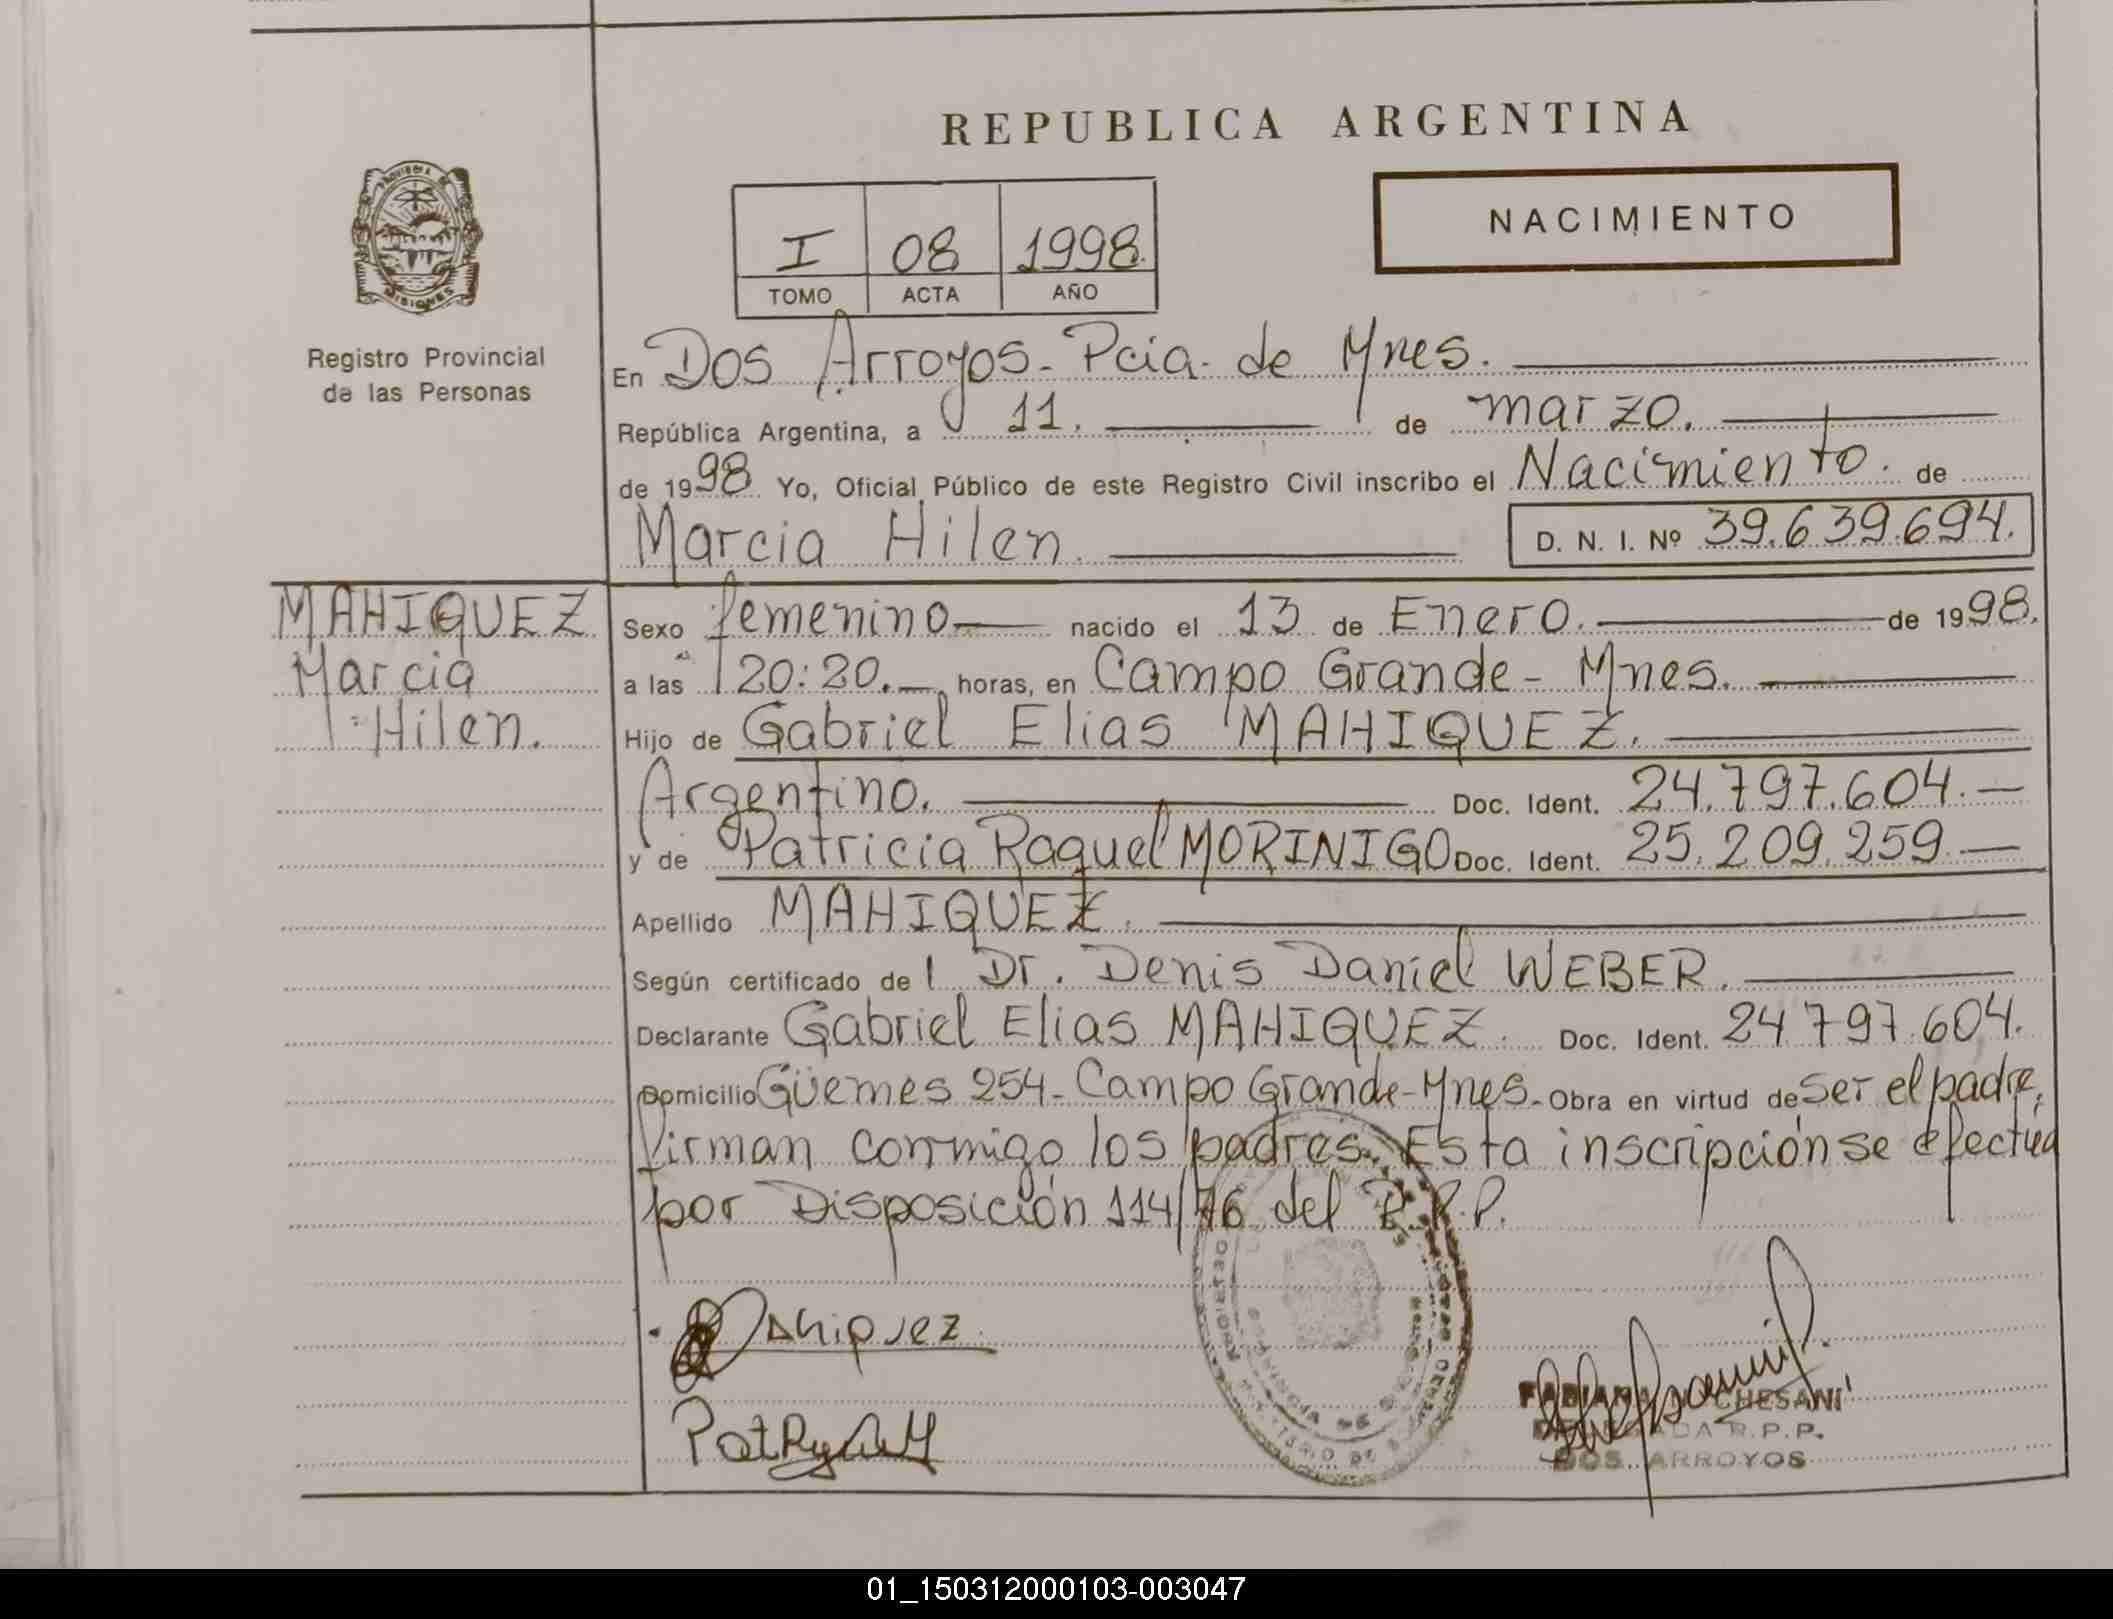 REPUBLICA ARGENTINA
NACIMIENTO
I 08 1998
TOMO ACTA AÑO
PROVINCIA DE
MISIONES
Registro Provincial
de las Personas
En Dos Arroyos - Pcia. de Mnes.
República Argentina, a 11. de marzo.
de 1998 Yo, Oficial Público de este Registro Civil inscribo el Nacimiento. de
Marcia Hilen. D. N. I. Nº 39.639.694.
MAHIQUEZ
Marcia
Hilen.
Sexo femenino nacido el 13 de Enero. de 1998.
a las 20:20. horas, en Campo Grande - Mnes.
Hijo de Gabriel Elias MAHIQUEZ.
Argentino. Doc. Ident. 24.797.604.-
y de Patricia Raquel MORINIGO Doc. Ident. 25.209.259.-
Apellido MAHIQUEZ.
Según certificado de Dr. Denis Daniel WEBER.
Declarante Gabriel Elias MAHIQUEZ. Doc. Ident. 24.797.604.
Domicilio Güemes 254 - Campo Grande - Mnes. Obra en virtud de ser el padre,
firman conmigo los padres. Esta inscripción se efectúa
por Disposición 114/76 del R.P.P.
Mahiquez
FABIANA CHESANI
DELEGADA R.P.P.
DOS ARROYOS
01_150312000103-003047